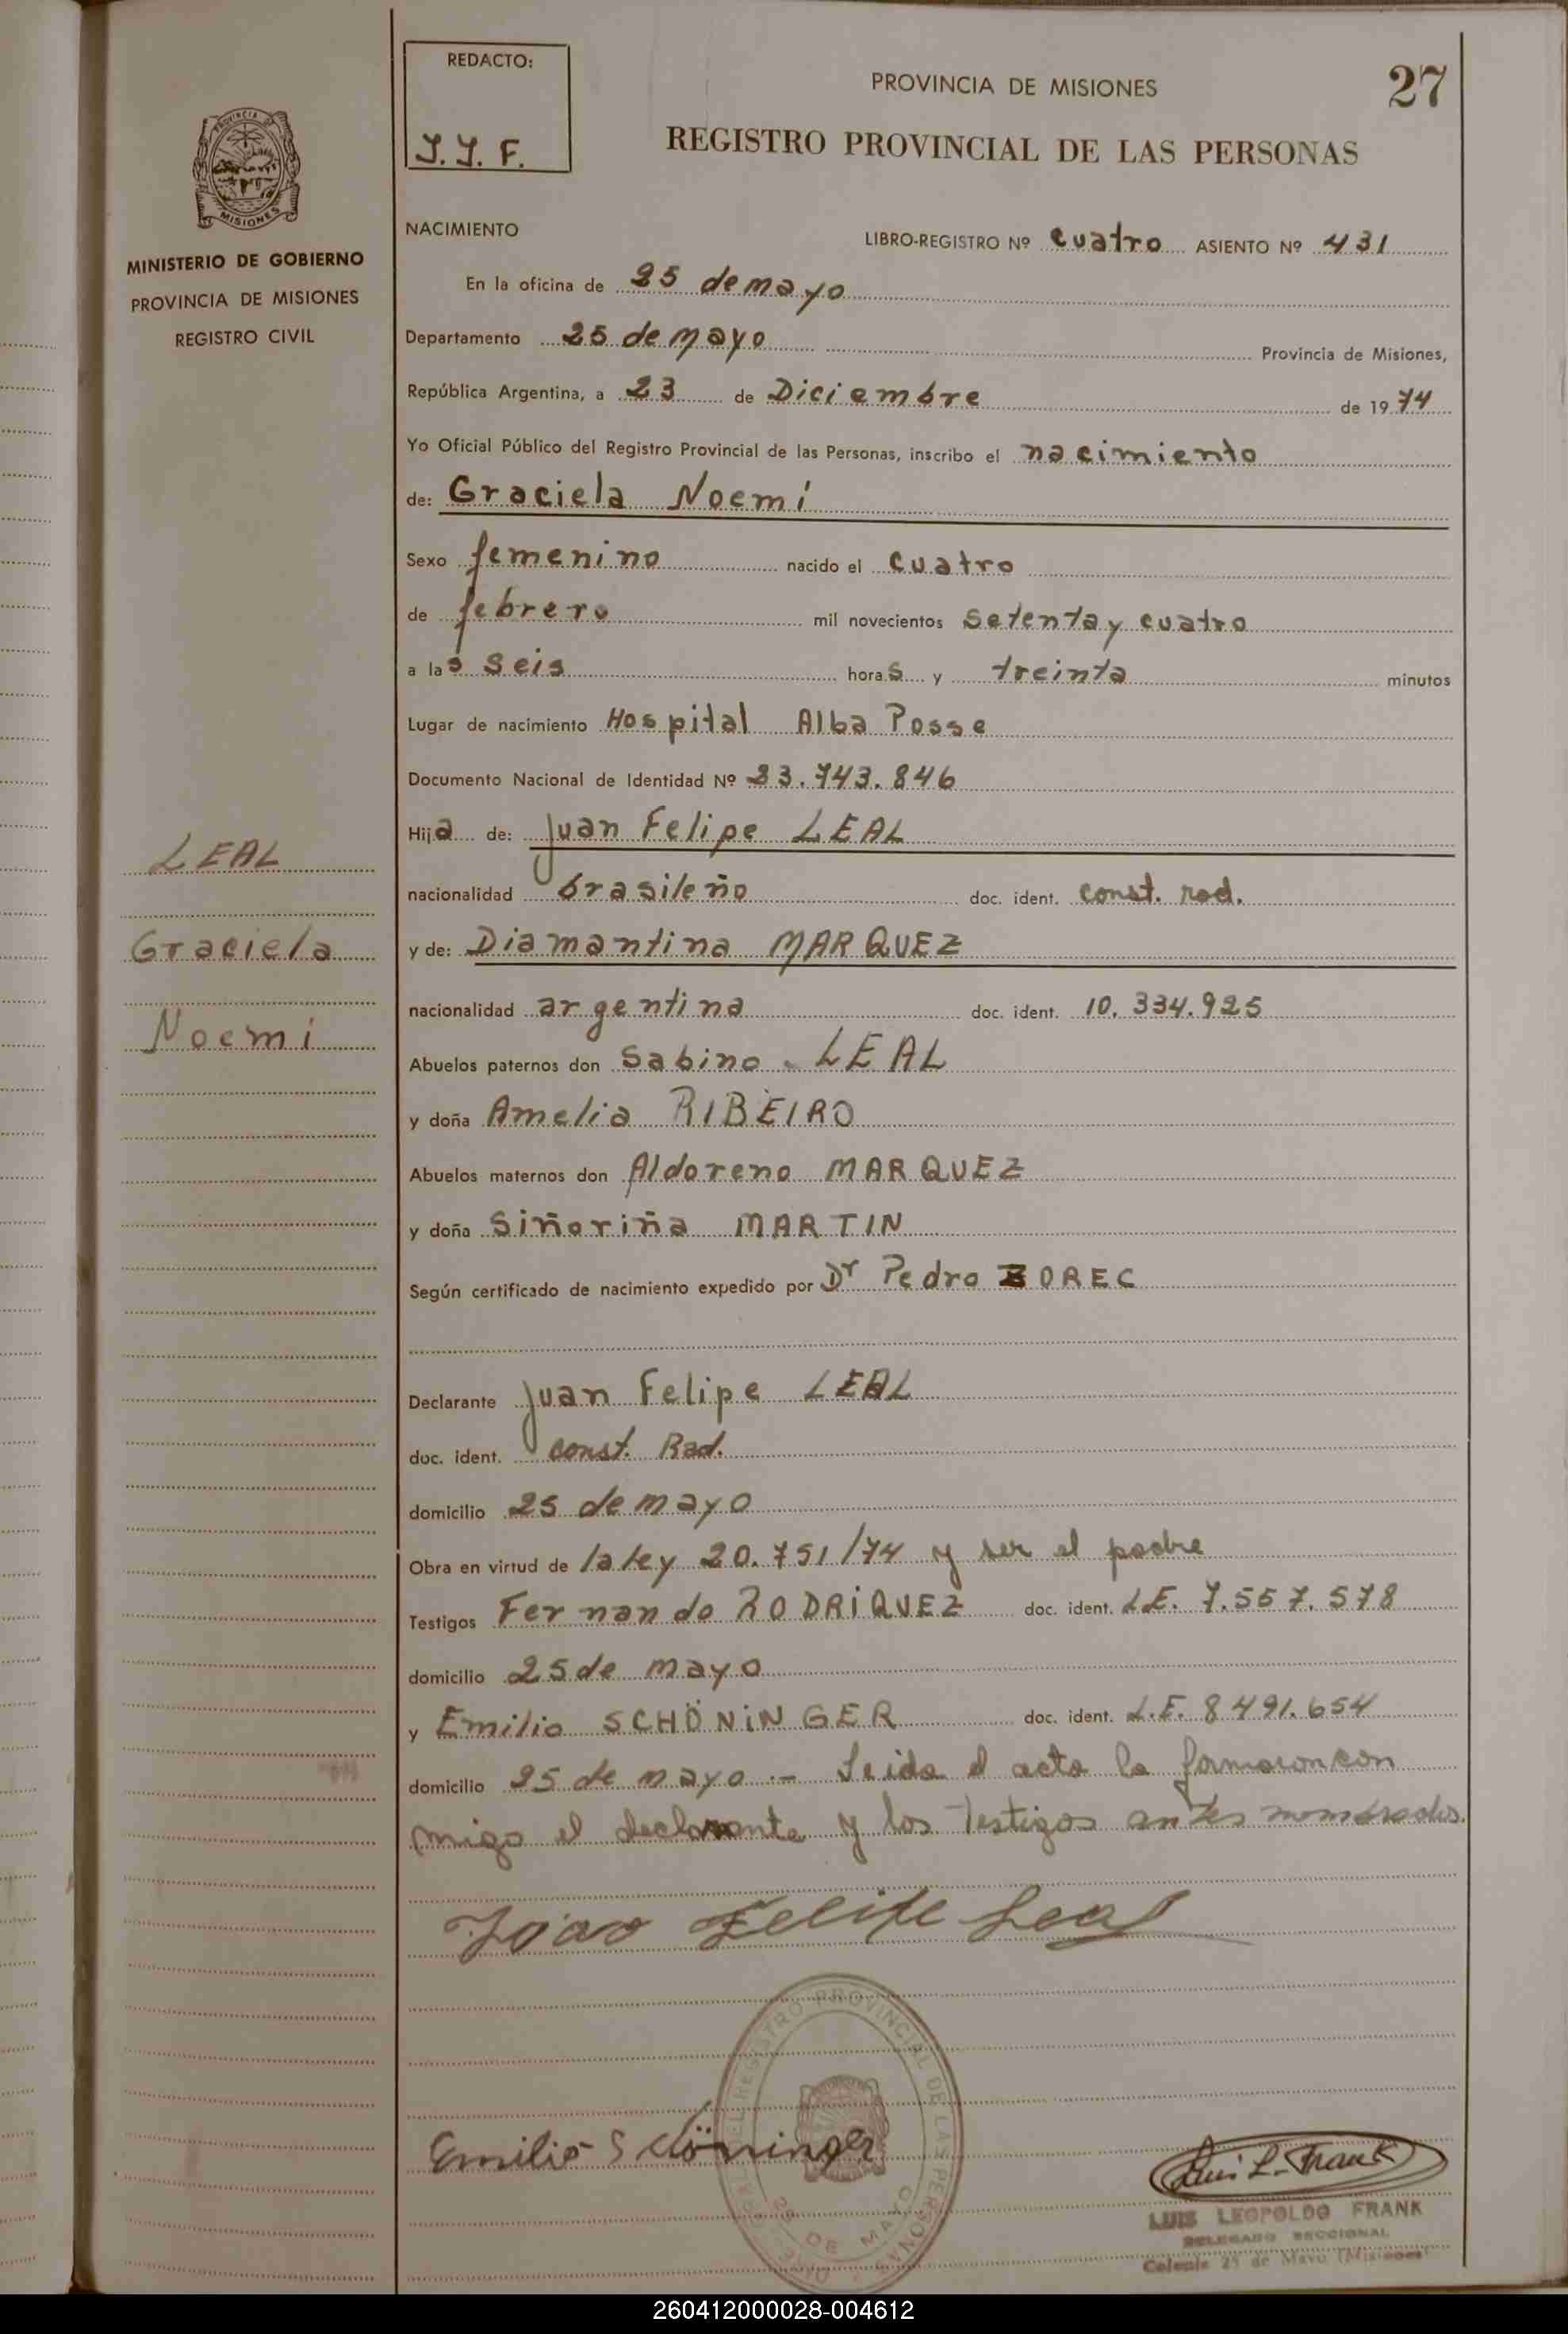 REDACTO:
J. J. F.
PROVINCIA DE MISIONES
27
REGISTRO PROVINCIAL DE LAS PERSONAS
PROVINCIA DE
MISIONES
MINISTERIO DE GOBIERNO
PROVINCIA DE MISIONES
REGISTRO CIVIL
LEAL
Graciela
Noemi
NACIMIENTO
LIBRO-REGISTRO Nº cuatro ASIENTO Nº 431
En la oficina de 25 de mayo
Departamento 25 de mayo Provincia de Misiones,
República Argentina, a 23 de Diciembre de 1974
Yo Oficial Público del Registro Provincial de las Personas, inscribo el nacimiento
de: Graciela Noemí
Sexo femenino nacido el cuatro
de febrero mil novecientos setenta y cuatro
a las seis horas y treinta minutos
Lugar de nacimiento Hospital Alba Posse
Documento Nacional de Identidad Nº 23.743.846
Hija de: Juan Felipe LEAL
nacionalidad brasileño doc. ident. const. rad.
y de: Diamantina MARQUEZ
nacionalidad argentina doc. ident. 10.334.925
Abuelos paternos don Sabino LEAL
y doña Amelia RIBEIRO
Abuelos maternos don Aldoreno MARQUEZ
y doña Siñoriña MARTIN
Según certificado de nacimiento expedido por Dr Pedro ZOREC
Declarante Juan Felipe LEAL
doc. ident. const. Rad.
domicilio 25 de mayo
Obra en virtud de la ley 20.751/74 y ser el padre
Testigos Fernando RODRIQUEZ doc. ident. L.E. 7.557.578
domicilio 25 de mayo
y Emilio SCHÖNINGER doc. ident. L.E. 8491.654
domicilio 25 de mayo.- Leida el acta la formaron con
migo el declarante y los Testigos antes nombrados.
João Felipe Leal
REGISTRO PROVINCIAL DE LAS PERSONAS
25 DE MAYO
Emilio Schöninger
Luis L. Frank
LUIS LEOPOLDO FRANK
DELEGADO SECCIONAL
Colonia 25 de Mayo (Misiones)
260412000028-004612